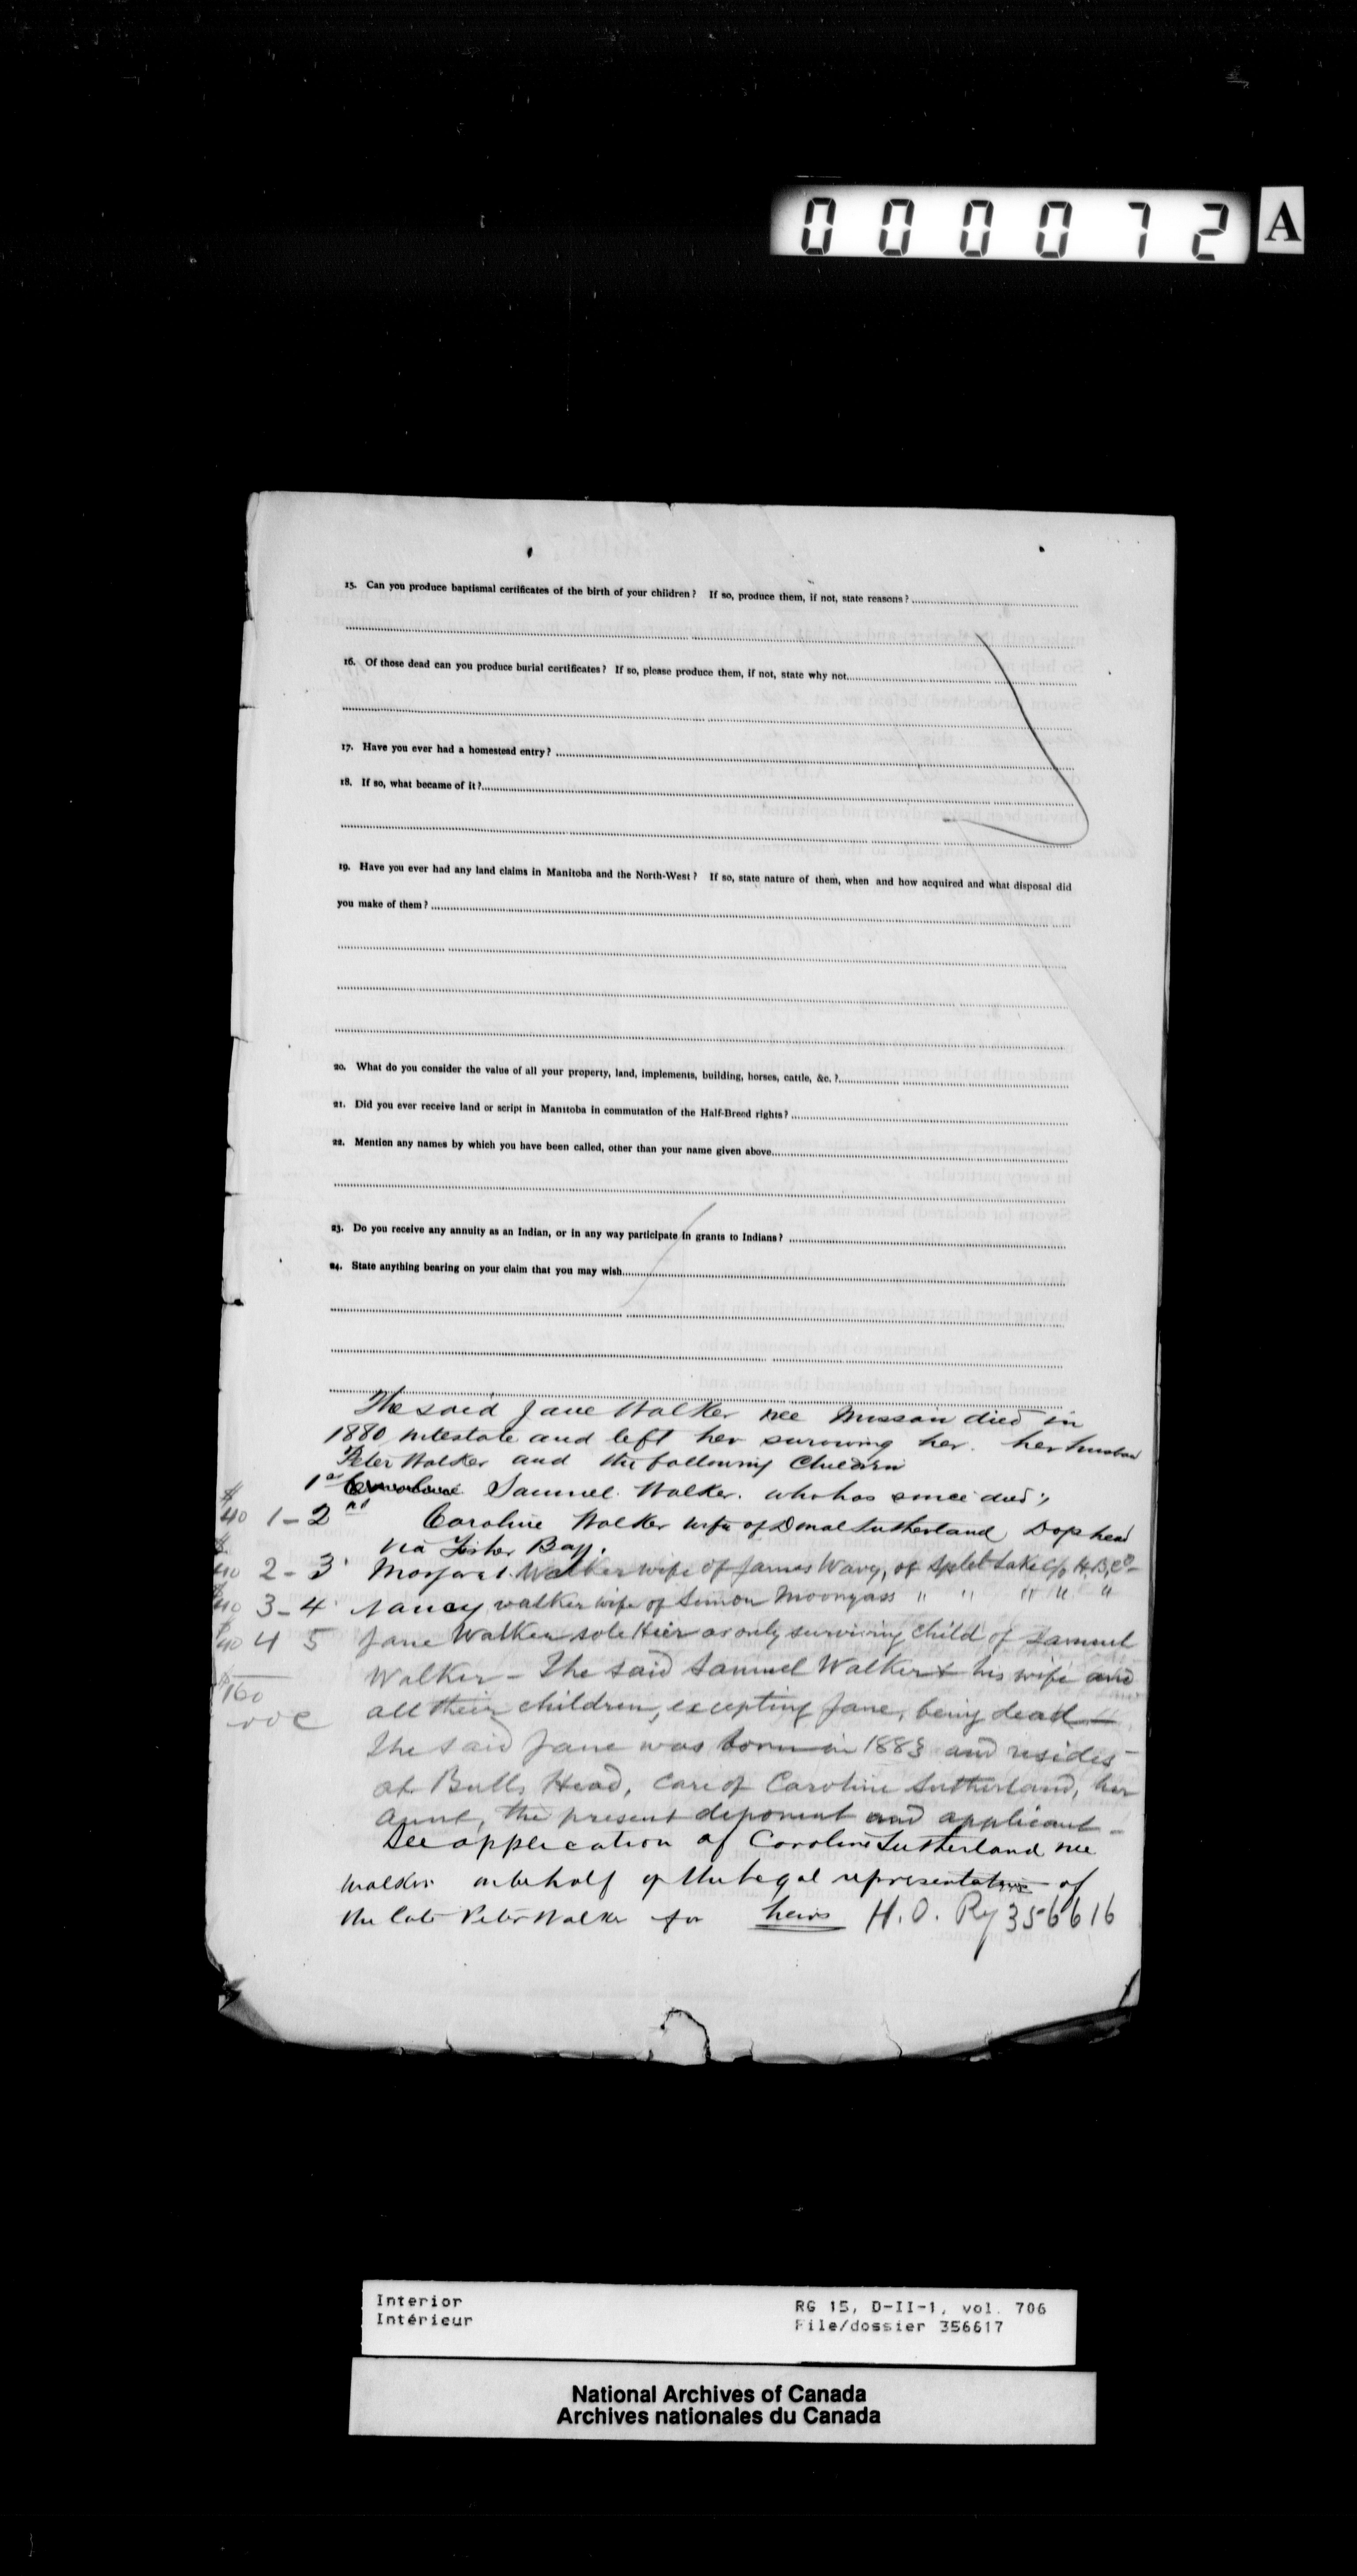 000072 A
15. Can you produce baptismal certificates of the birth of your children? If so, produce them, if not, state reasons?
16. Of those dead can you produce burial certificates? If so, please produce them, if not, state why not
17. Have you ever had a homestead entry?
18. If so, what became of it?
19. Have you ever had any land claims in Manitoba and the North-West? If so, state nature of them, when and how acquired and what disposal did
you make of them?
20. What do you consider the value of all your property, land, implements, building, horses, cattle, &c.?
21. Did you ever receive land or script in Manitoba in commutation of the Half-Breed rights?
22. Mention any names by which you have been called, other than your name given above
23. Do you receive any annuity as an Indian, or in any way participate in grants to Indians?
24. State anything bearing on your claim that you may wish
The said Jane Walker nee died in
1880 intestate and left her surviving her. her husband
Peter Walker and the following Children
1st Samuel Walker. who has since died;
$40 1-2nd Caroline Walker wife of Donal Sutherland Dop head
via Fisher Bay.
$40 2-3 Margaret Walker wife of James Wavy, of Split Lake c/o H.B.Co-
$40 3-4 Nancy walker wife of Simon Moonyass " " " " "
$40 4 5 Jane Walker sole Heir as only surviving child of Samuel
Walker - The said Samuel Walker & his wife and
$160
all their children, excepting Jane, being dead -
The said Jane was born in 1883 and resides
at Bulls Head, care of Caroline Sutherland, her
aunt, the present deponent and applicant -
See application of Caroline Sutherland nee
walker on behalf of the legal representative of
the late Peter Walker for heirs H.O. Ry 356616
Interior
Intérieur
RG 15, D-II-1, vol. 706
File/dossier 356617
National Archives of Canada
Archives nationales du Canada